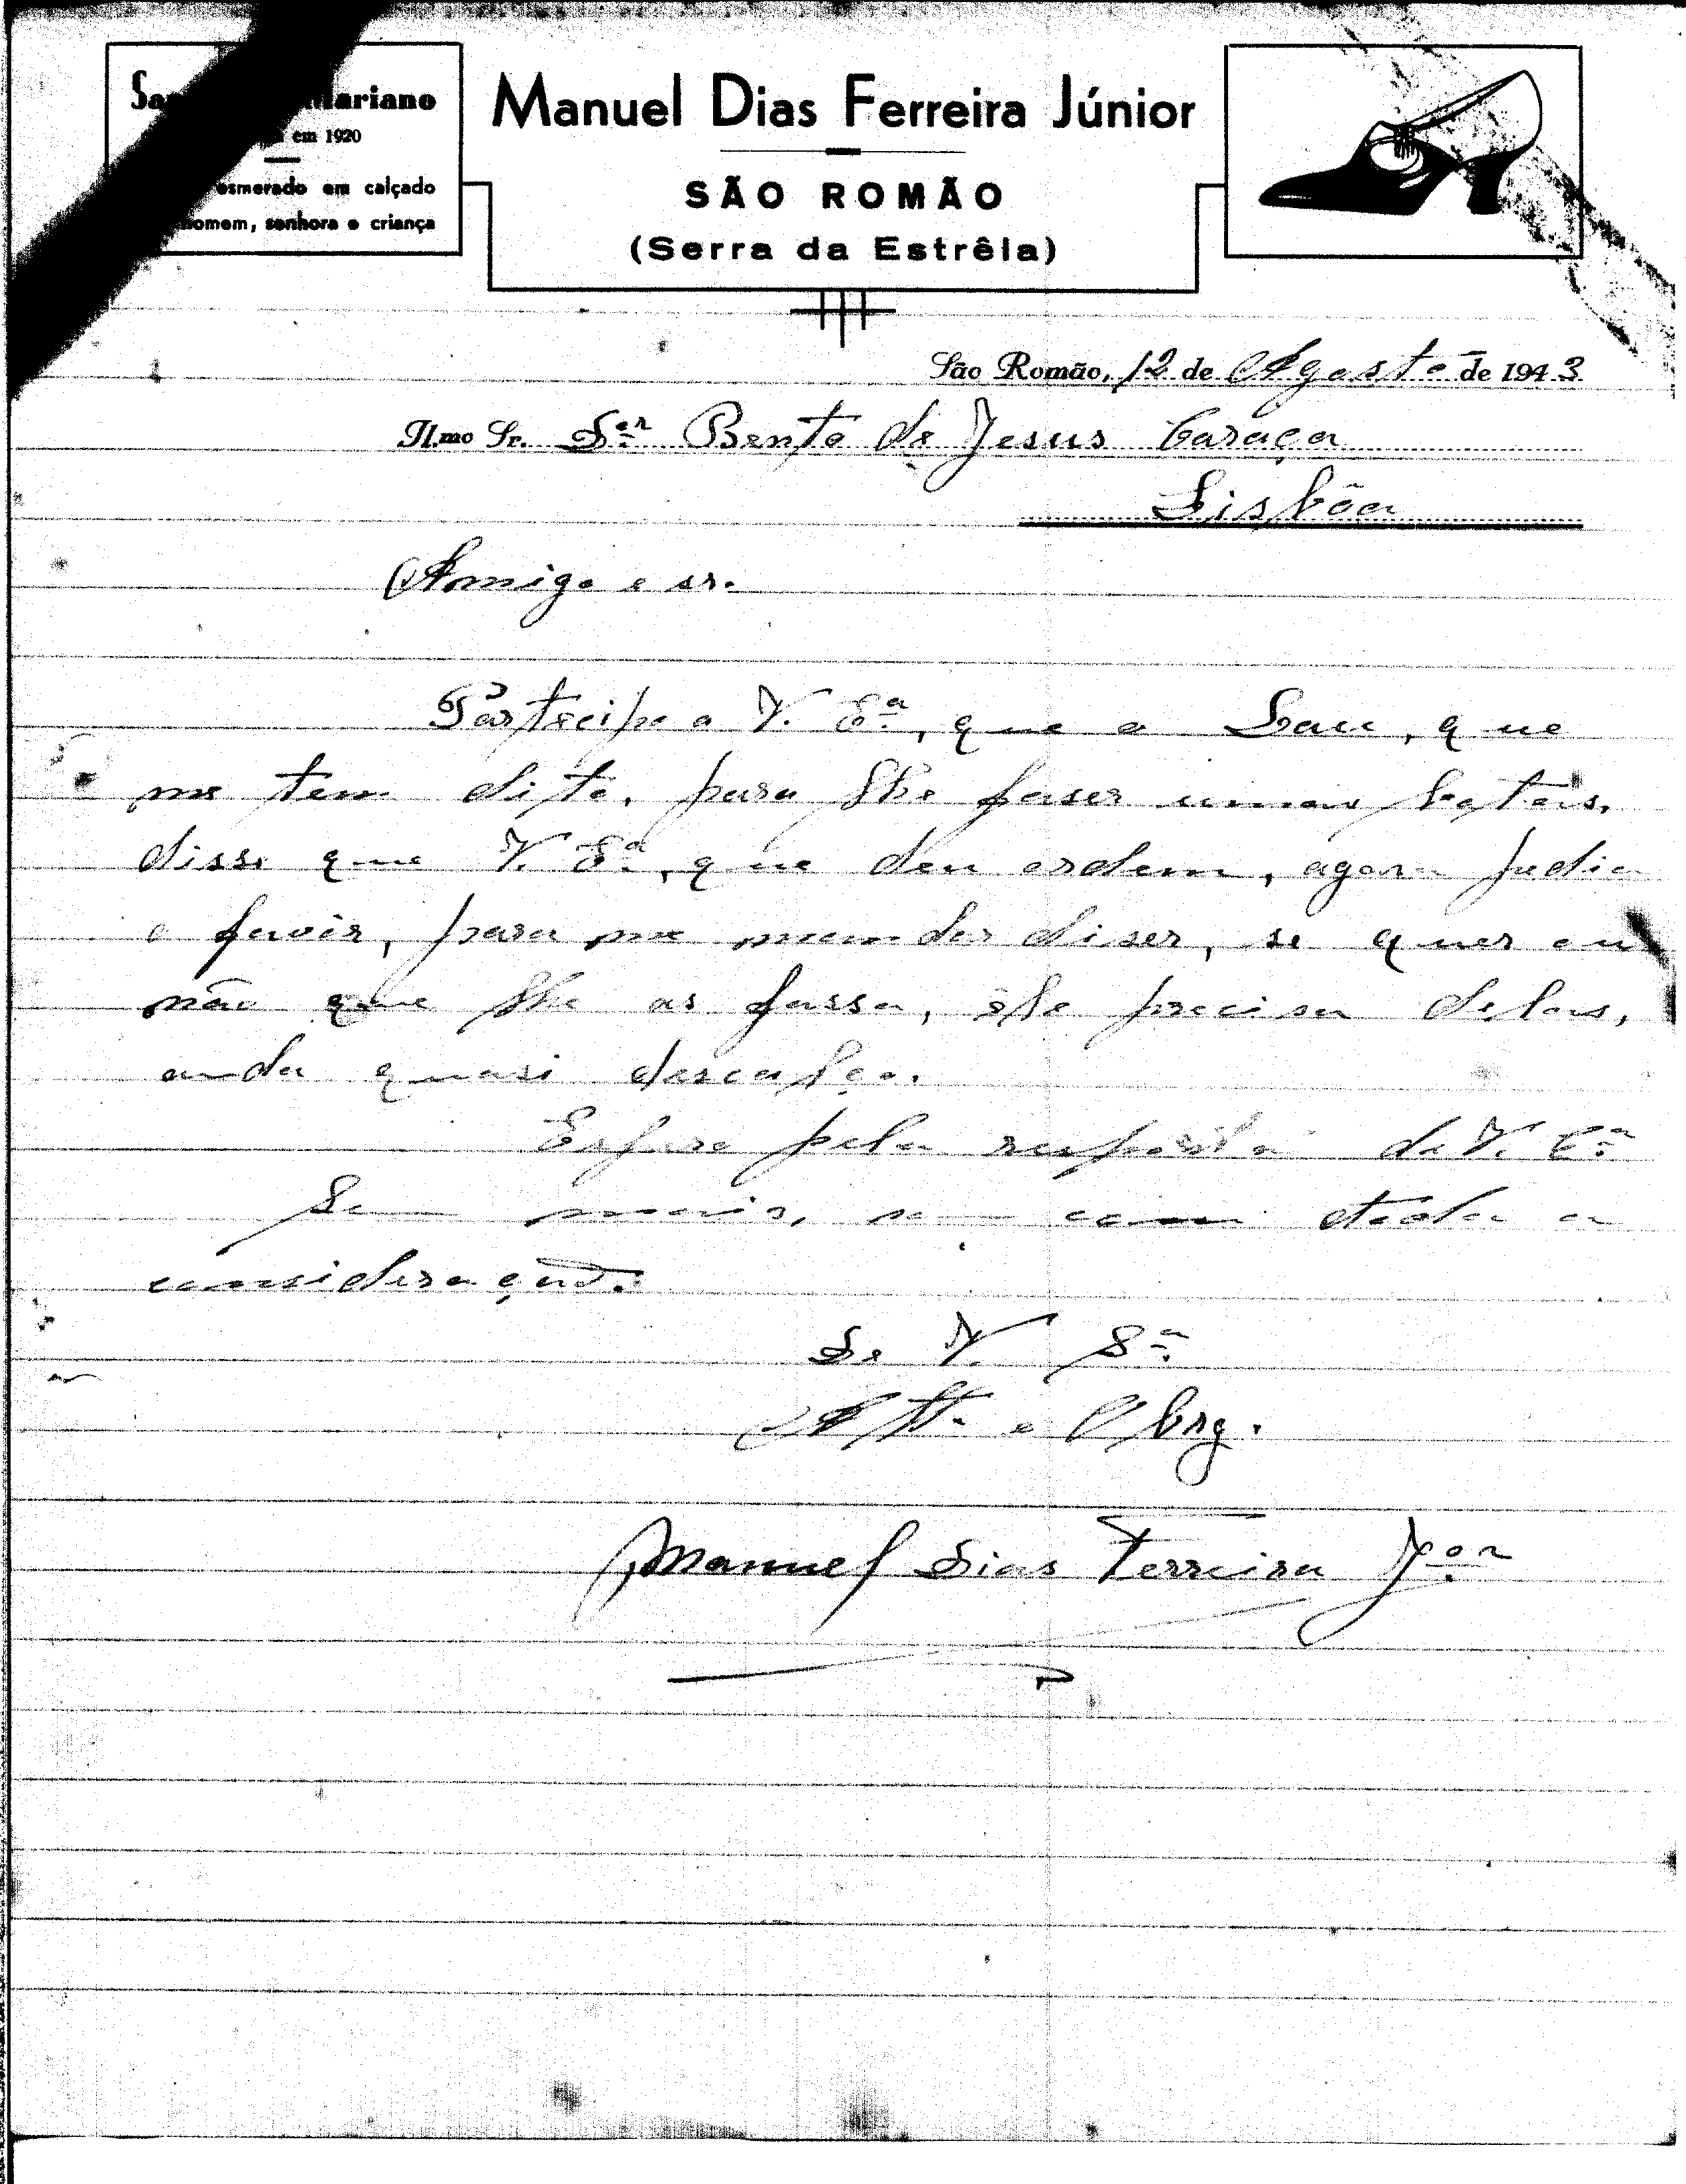 Mariano
em 1920
esmerado em calçado
homem, senhora e criança
Manuel Dias Ferreira Júnior
SÃO ROMÃO
(Serra da Estrêla)
São Romão, 12 de Agosto de 1943
Il.mo Sr. Ser Bento de Jesus Caraça
Lisbôa
Amigo e sr.
Participo a V. Eª, que o Lau, que
me tem dito, para lhe faser umas botas,
disse que V. Eª, que deu ordem, agora pedia
o favôr, para me mandar diser, se quer ou
não que lhe as fassa, êle precisa delas,
anda quasi descalço.
Espero pela resposta de V. Eª
Se mais, sou com toda a
consideração.
De V. Sª
Att. e Obrg.
Manuel Dias Ferreira Jor